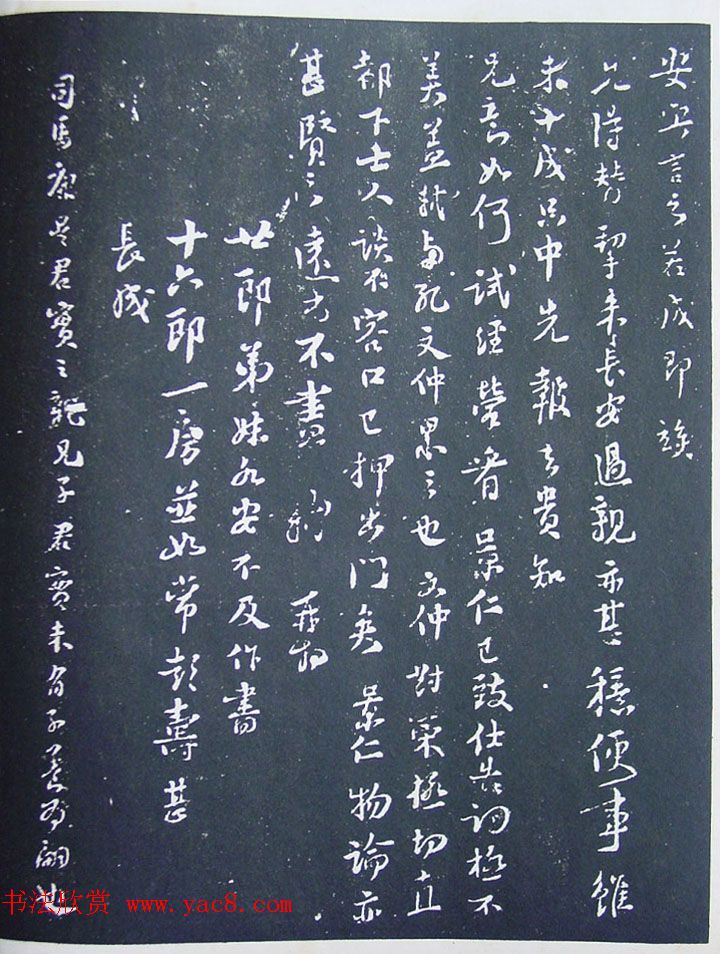 安言之若成即
兄得替挈來長安過親亦甚穩便事雖
未十成只中先報去貴知
兄意如何試經營看景仁已致仕告詞極不
美蓋軾與孔文仲累之也文仲對策極切直
都下士人談不容口已押出門矣景仁物論亦
甚賢之遠方不盡 軾 再拜
廿郎弟婦各安不及作書
十六郎一房並如常彭壽甚
長成
司馬康是君實之親兄子君實未有子養為嗣也
书法欣赏 www.yac8.com